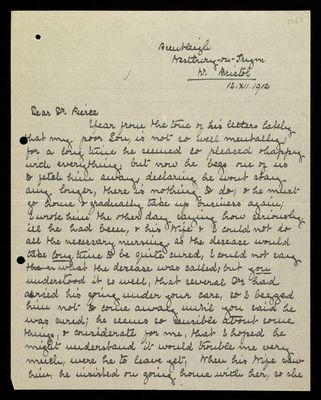 Westbury-on-Trym
Nr. Bristol
12.XII.1912
Dear Dr. Pierce
I fear from the tone of his letters lately
that my poor Son, is not so well mentally,
for a long time he seemed so pleased & happy
with everything, but now he begs one of us
to fetch him away, declaring he wont stay
any longer, there is nothing to do, & he must
go home & gradually take up business again;
I wrote him the other day saying how seriously
ill he had been, & his Wife & I could not do
all the necessary nursing as the disease would
take long time to be quite cured, I could not say
what the disease was called, but you
understood it so well, that several Drs had
advised his going under your care, so I begged
him not to come away until you said he
was cured; he seems so sensible about some
things, & considerate for me, that I hoped he
might understand it would trouble me very
much, were he to leave yet, When his Wife saw
him, he insisted on going home with her, so she